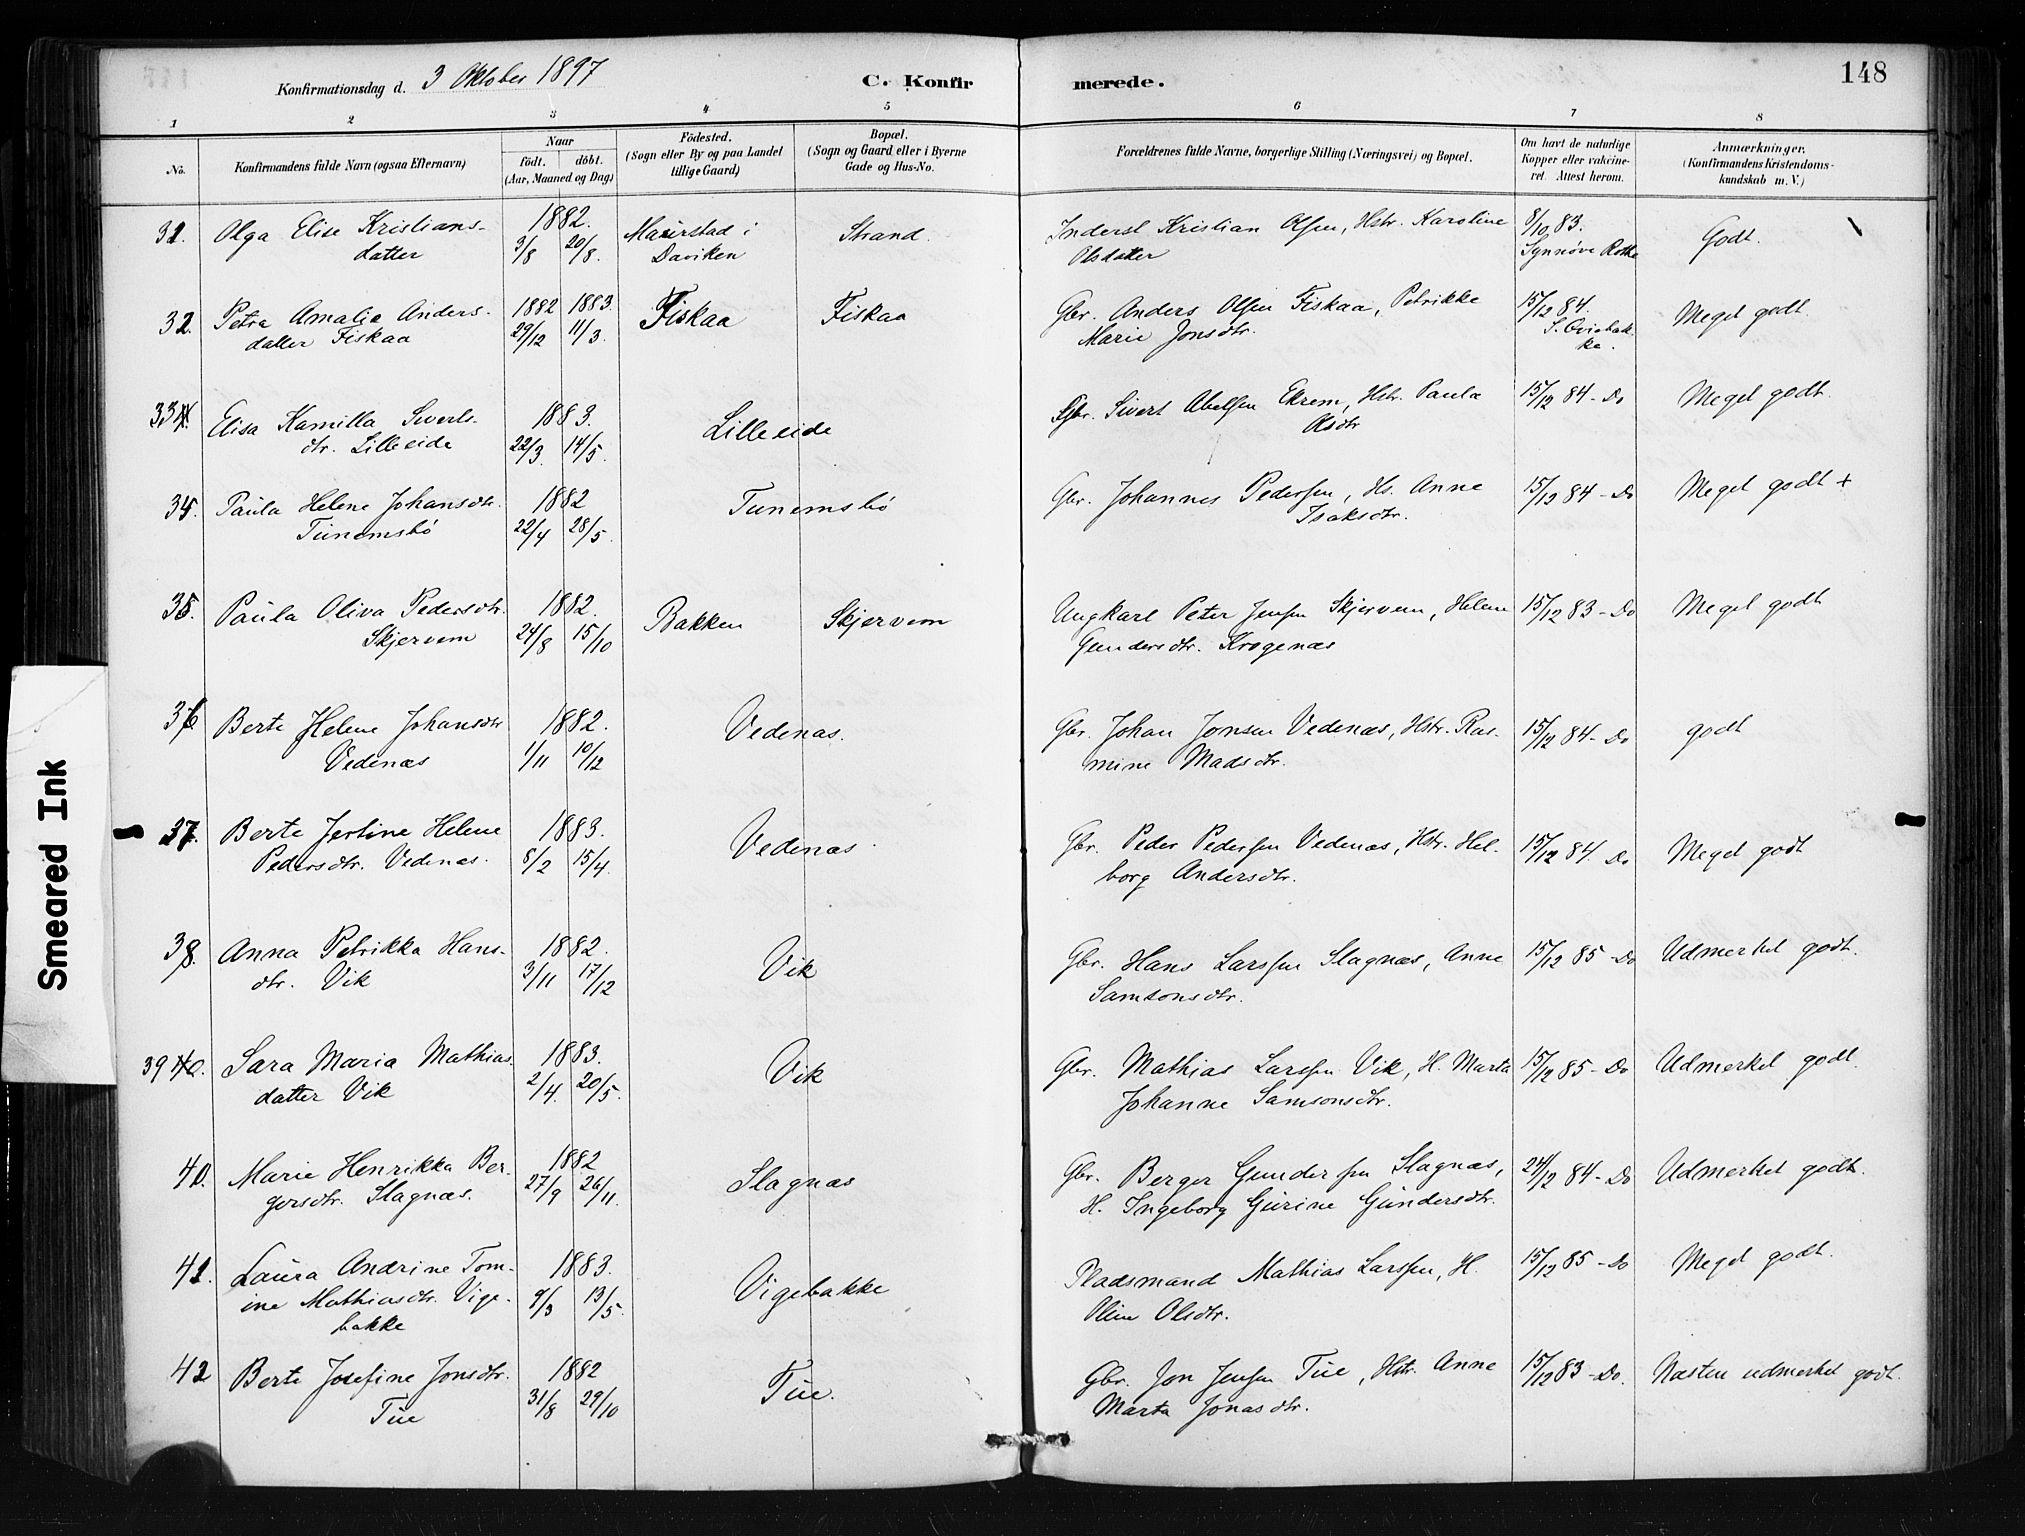 Konfirmationsdag d. 3 Oktober 1897 C. Konfir merede. 148
1 2 3 4 5 6 7 8
No. Konfirmandens fulde Navn (ogsaa Efternavn)
Naar
født. døbt.
(Aar, Maaned og Dag)
Fødested.
(Sogn eller By og paa Landet
tillige Gaard)
Bopæl.
(Sogn og Gaard eller i Byerne
Gade og Hus-No.
Forældrenes fulde Navne, borgerlige Stilling (Næringsvei) og Bopæl.
Om havt de naturlige
Kopper eller vakcine-
ret. Attest herom.
Anmærkninger.
(Konfirmandens Kristendoms-
kundskab m. V.)
31. Olga Elise Kristians- 1882. Maurstad i Strand. Inderst Kristian Olsen, Hstr. Karoline 8/10 83. Godt.
datter 3/8 20/8. Daviken Olsdatter Synnøve Rotke
32. Petra Amalie Anders- 1882 1883. Fiskaa Fiskaa Gbr. Anders Olsen Fiskaa, Petrikke 15/12 84. Meget godt.
datter Fiskaa 29/12 11/3. Marie Jonsdtr.
33. Elisa Kamilla Siverts- 1883. Lilleeide Gbr. Sivert Abelsen Ekrem, Hstr. Paula 15/12 84 - Do Meget godt.
dtr. Lilleeide 22/3. 14/5. Olsdtr
34. Paula Helene Johansdtr. 1882 Tunemsbø Gbr. Johannes Pedersen, Hs. Anne 15/12 84 - Do Meget godt +
Tunemsbø 22/4 28/5. Isaksdtr.
35. Paula Oliva Pedersdtr. 1882. Bakken Skjervem Ungkarl Peter Jensen Skjervem, Helene 15/12 83 - Do Meget godt
Skjervem 24/8 15/10 Gundersdtr. Krogenæs
36 Berte Helene Johansdtr 1882. Vedenæs. Gbr. Johan Jonsen Vedenæs, Hstr. Ras- 15/12 84 - Do godt
Vedenæs 1/11 10/12 mine Madsdtr.
37. Berte Jertine Helene 1883. Vedenæs. Gbr. Peder Pedersen Vedenæs, Hstr. Hel- 15/12 84. Do Meget godt
Pedersdtr. Vedenæs. 8/2 15/4. borg Andersdtr.
38. Anna Petrikka Hans- 1882. Vik Gbr. Hans Larssen Slagnæs, Anne 15/12 85 - Do Udmerket godt.
dtr. Vik 3/11 17/12 Samsonsdtr.
39 40. Sara Maria Mathias- 1883. Vik Gbr. Mathias Larssen Vik, H. Marta 15/12 85 - Do Udmerket godt.
datter Vik 2/4. 20/5. Johanne Samsonsdtr.
40. Marie Henrikka Ber- 1882 Slagnæs Gbr. Berger Gundersen Slagnæs, 24/12 84 - Do Udmerket godt.
gersdtr. Slagnæs. 27/9 26/11. H. Ingeborg Gurine Gundersdtr.
41. Laura Andrine Tom- 1883. Vigebakke Pladsmand Mathias Larssen, H. 15/12 85 - Do Meget godt.
ine Mathiasdtr. Vige- 9/3 13/5. Oline Olsdtr.
bakke
42 Berte Josefine Jonsdtr. 1882 Tue. Gbr. Jon Jensen Tue, Hstr. Anne 15/12 83 - Do. Næsten udmerket godt.
Tue 31/8 29/10 Marta Jonasdtr.
Smeared Ink